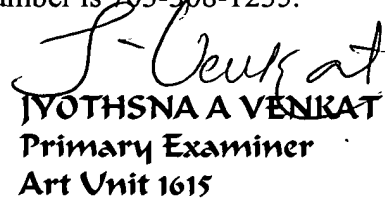 umber is 703-308-1235.
J - Venkat
JYOTHSNA A VENKAT
Primary Examiner
Art Unit 1615